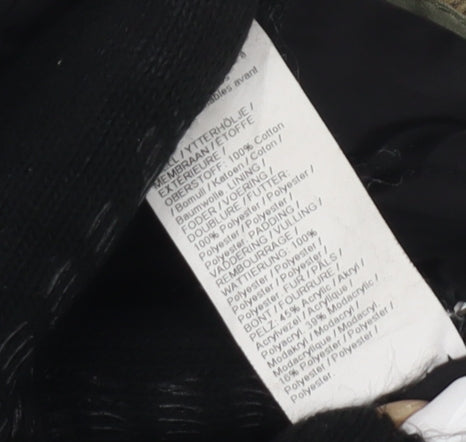 ables avant
/ YTTERHÖLJE /
MEMBRAAN / ÉTOFFE
EXTÉRIEURE /
OBERSTOFF: 100% Cotton
/ Bomull / Katoen / Coton /
Baumwolle LINING /
FODER VOERING /
DOUBLURE / FUTTER:
100% Polyester / Polyester /
Polyester / Polyester /
Polyester PADDING /
VADDERING / VULLING /
REMBOURRAGE /
WATTIERUNG: 100%
Polyester / Polyester /
Polyester / Polyester /
Polyester FUR / PÄLS /
BONT / FOURRURE /
PELZ: 45% Acrylic / Akryl /
Acrylvezel / Acrylique /
Polyacryl 39% Modacrylic /
Modakryl / Modacryl /
Modacrylique / Modacryl
16% Polyester / Polyester /
Polyester / Polyester /
Polyester